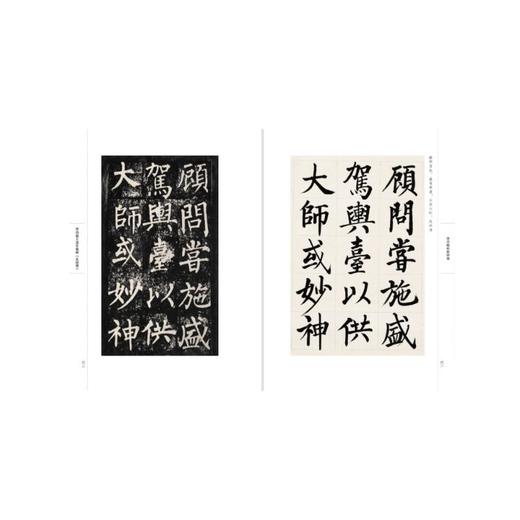 顧問嘗施盛
駕輿臺以供
大師或妙神
顧問嘗施盛
駕輿臺以供
大師或妙神